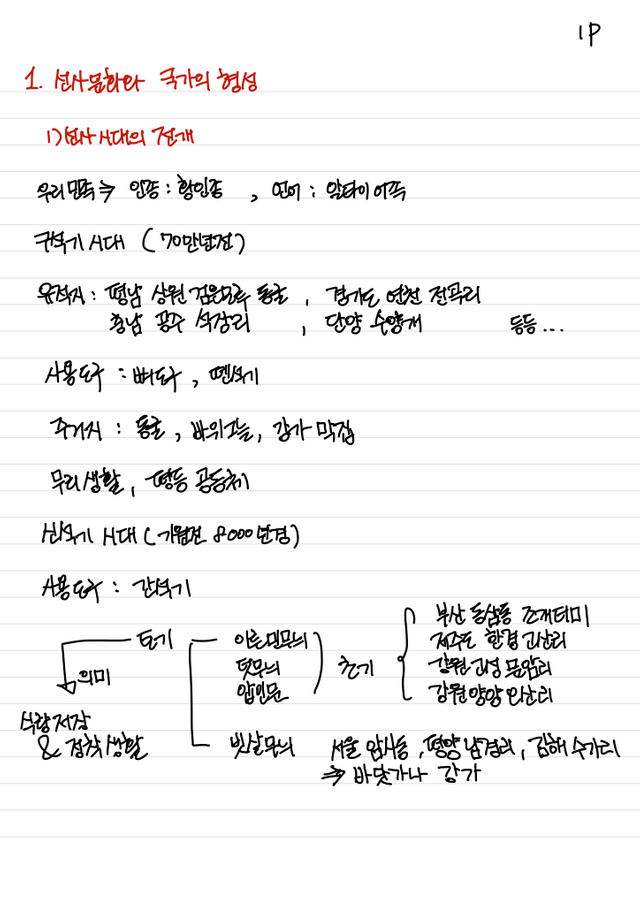 1P
1. 선사문화와 국가의 형성
1) 선사시대의 전개
우리민족 ⇒ 인종 : 황인종 , 언어 : 알타이어족
구석기 시대 (70만년전)
유적지 : 평남 상원 검은모루 동굴 , 경기도 연천 전곡리
충남 공주 석장리 , 단양 수양개 등등...
사용도구 : 뼈도구 , 뗀석기
주거지 : 동굴 , 바위그늘 , 강가 막집
무리생활 , 평등 공동체
신석기 시대 (기원전 8000년경)
사용도구 : 간석기
토기 이른민무늬 초기 부산 동삼동 조개더미
덧무늬 제주도 한경 고산리
의미 압인문 강원 고성 문암리
강원 양양 오산리
식량저장
& 정착생활 빗살무늬 서울 암사동 , 평양 남경리 , 김해 수가리
⇒ 바닷가나 강가